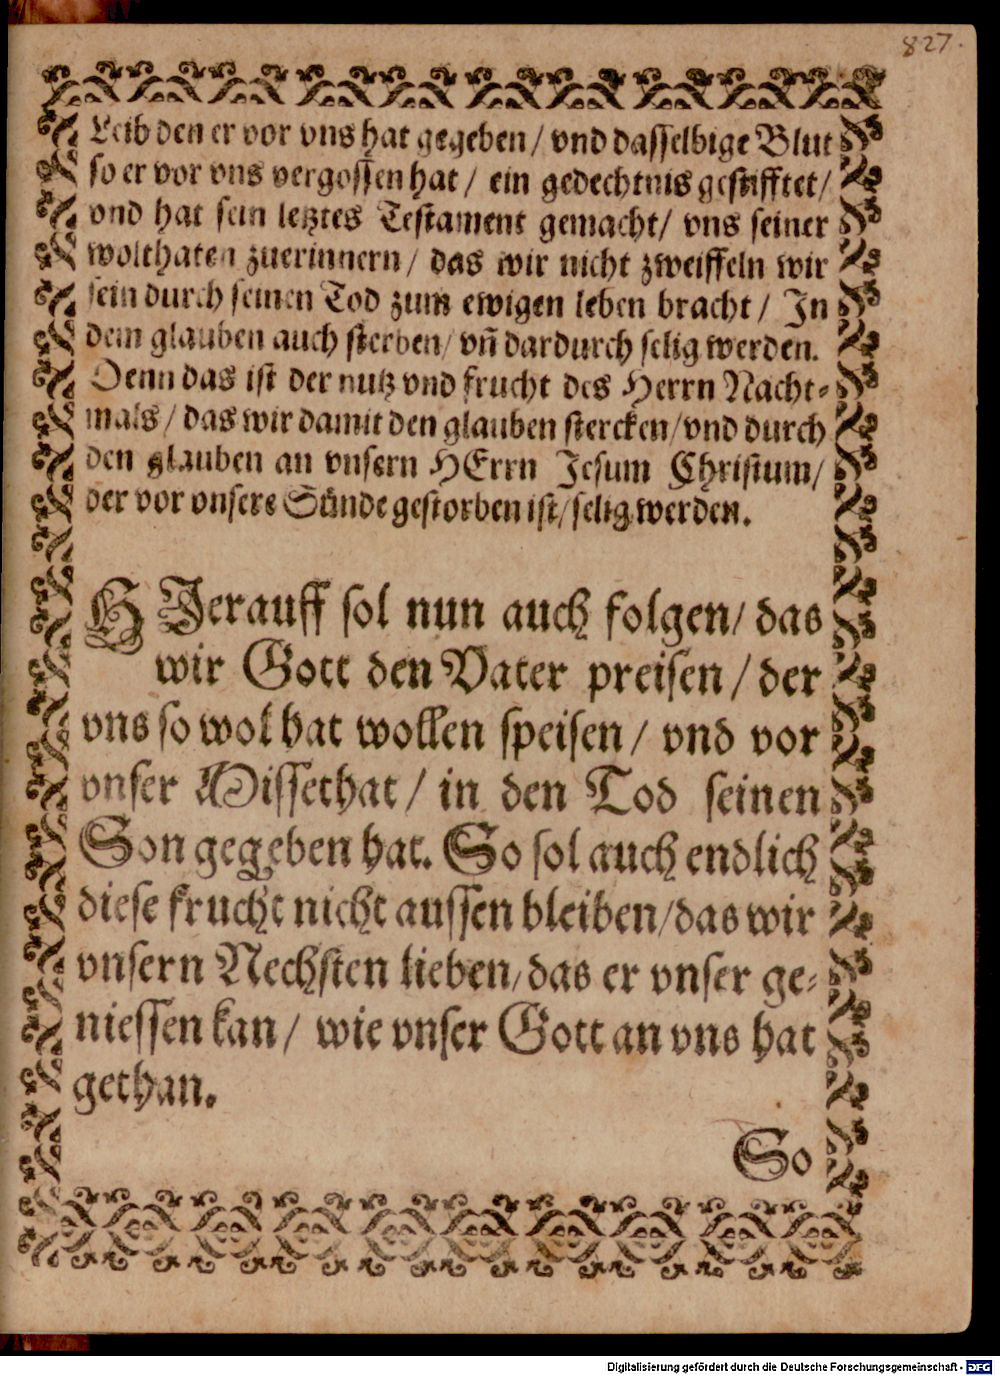 827.
Leib den er vor vns hat gegeben / vnd dasselbige Blut
so er vor vns vergossen hat / ein gedechtnis gestifftet /
vnd hat sein letztes Testament gemacht / vns seiner
wolthaten zuerinnern / das wir nicht zweiffeln wir
sein durch seinen Tod zum ewigen leben bracht / In
dem glauben auch sterben / vñ dardurch selig werden.
Denn das ist der nutz vnd frucht des Herrn Nacht-
mals / das wir damit den glauben stercken / vnd durch
den glauben an vnsern HErrn Jesum Christum /
der vor vnsere Sünde gestorben ist / selig werden.
HIerauff sol nun auch folgen / das
wir Gott den Vater preisen / der
vns so wol hat wollen speisen / vnd vor
vnser Missethat / in den Tod seinen
Son gegeben hat. So sol auch endlich
diese frucht nicht aussen bleiben / das wir
vnsern Nechsten lieben / das er vnser ge-
niessen kan / wie vnser Gott an vns hat
gethan.
So
Digitalisierung gefördert durch die Deutsche Forschungsgemeinschaft - DFG